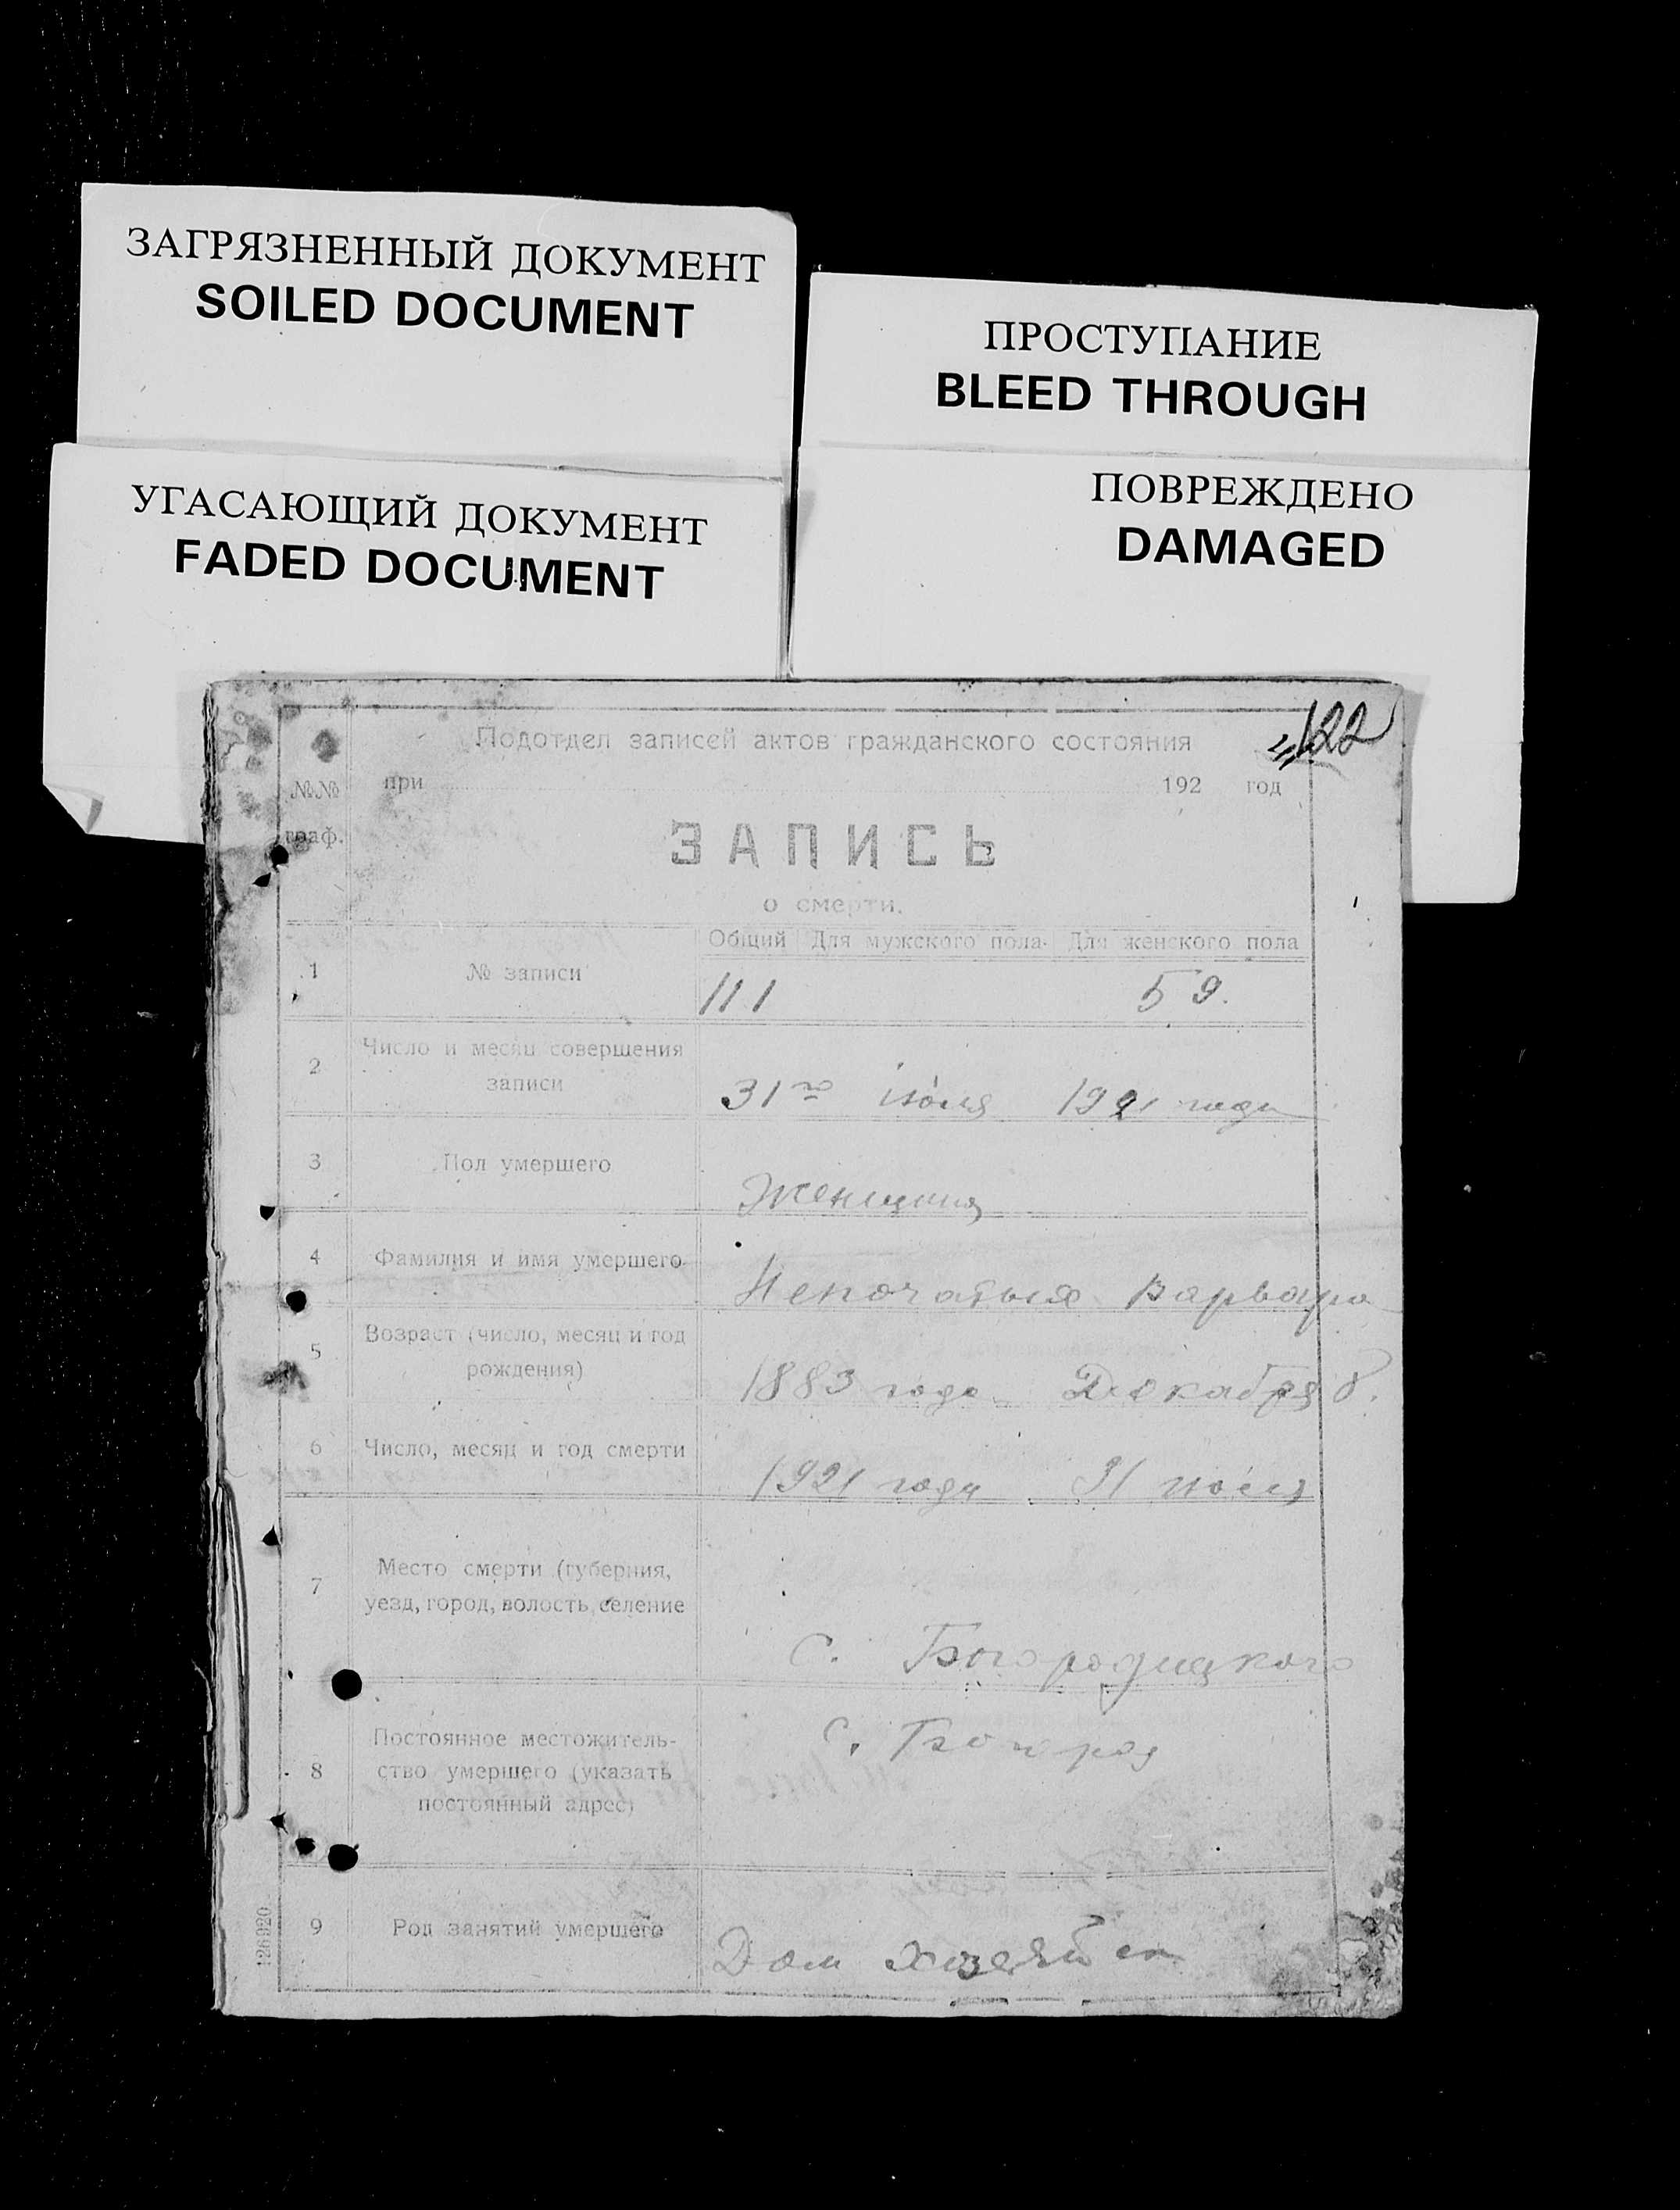 ЗАГРЯЗНЕННЫЙ ДОКУМЕНТ
SOILED DOCUMENT
ПРОСТУПАНИЕ
BLEED THROUGH
УГАСАЮЩИЙ ДОКУМЕНТ
FADED DOCUMENT
ПОВРЕЖДЕНО
DAMAGED
122
Подотдел записей актов гражданского состояния
№№ граф.
при 192 год
ЗАПИСЬ
о смерти.
Общий Для мужского пола Для женского пола
1 № записи 111 59.
2 Число и месяц совершения
записи 31го июля 1921 года
3 Пол умершего Женщина
4 Фамилия и имя умершего Непочатыя Варвара
5 Возраст (число, месяц и год
рождения) 1883 года Декабря
6 Число, месяц и год смерти 1921 года 31 июля
7 Место смерти (губерния,
уезд, город, волость, селение
С. Богородицкого
8 Постоянное местожитель-
ство умершего (указать
постоянный адрес)
С. Богород
9 Род занятий умершего Дом хозяйск
126920